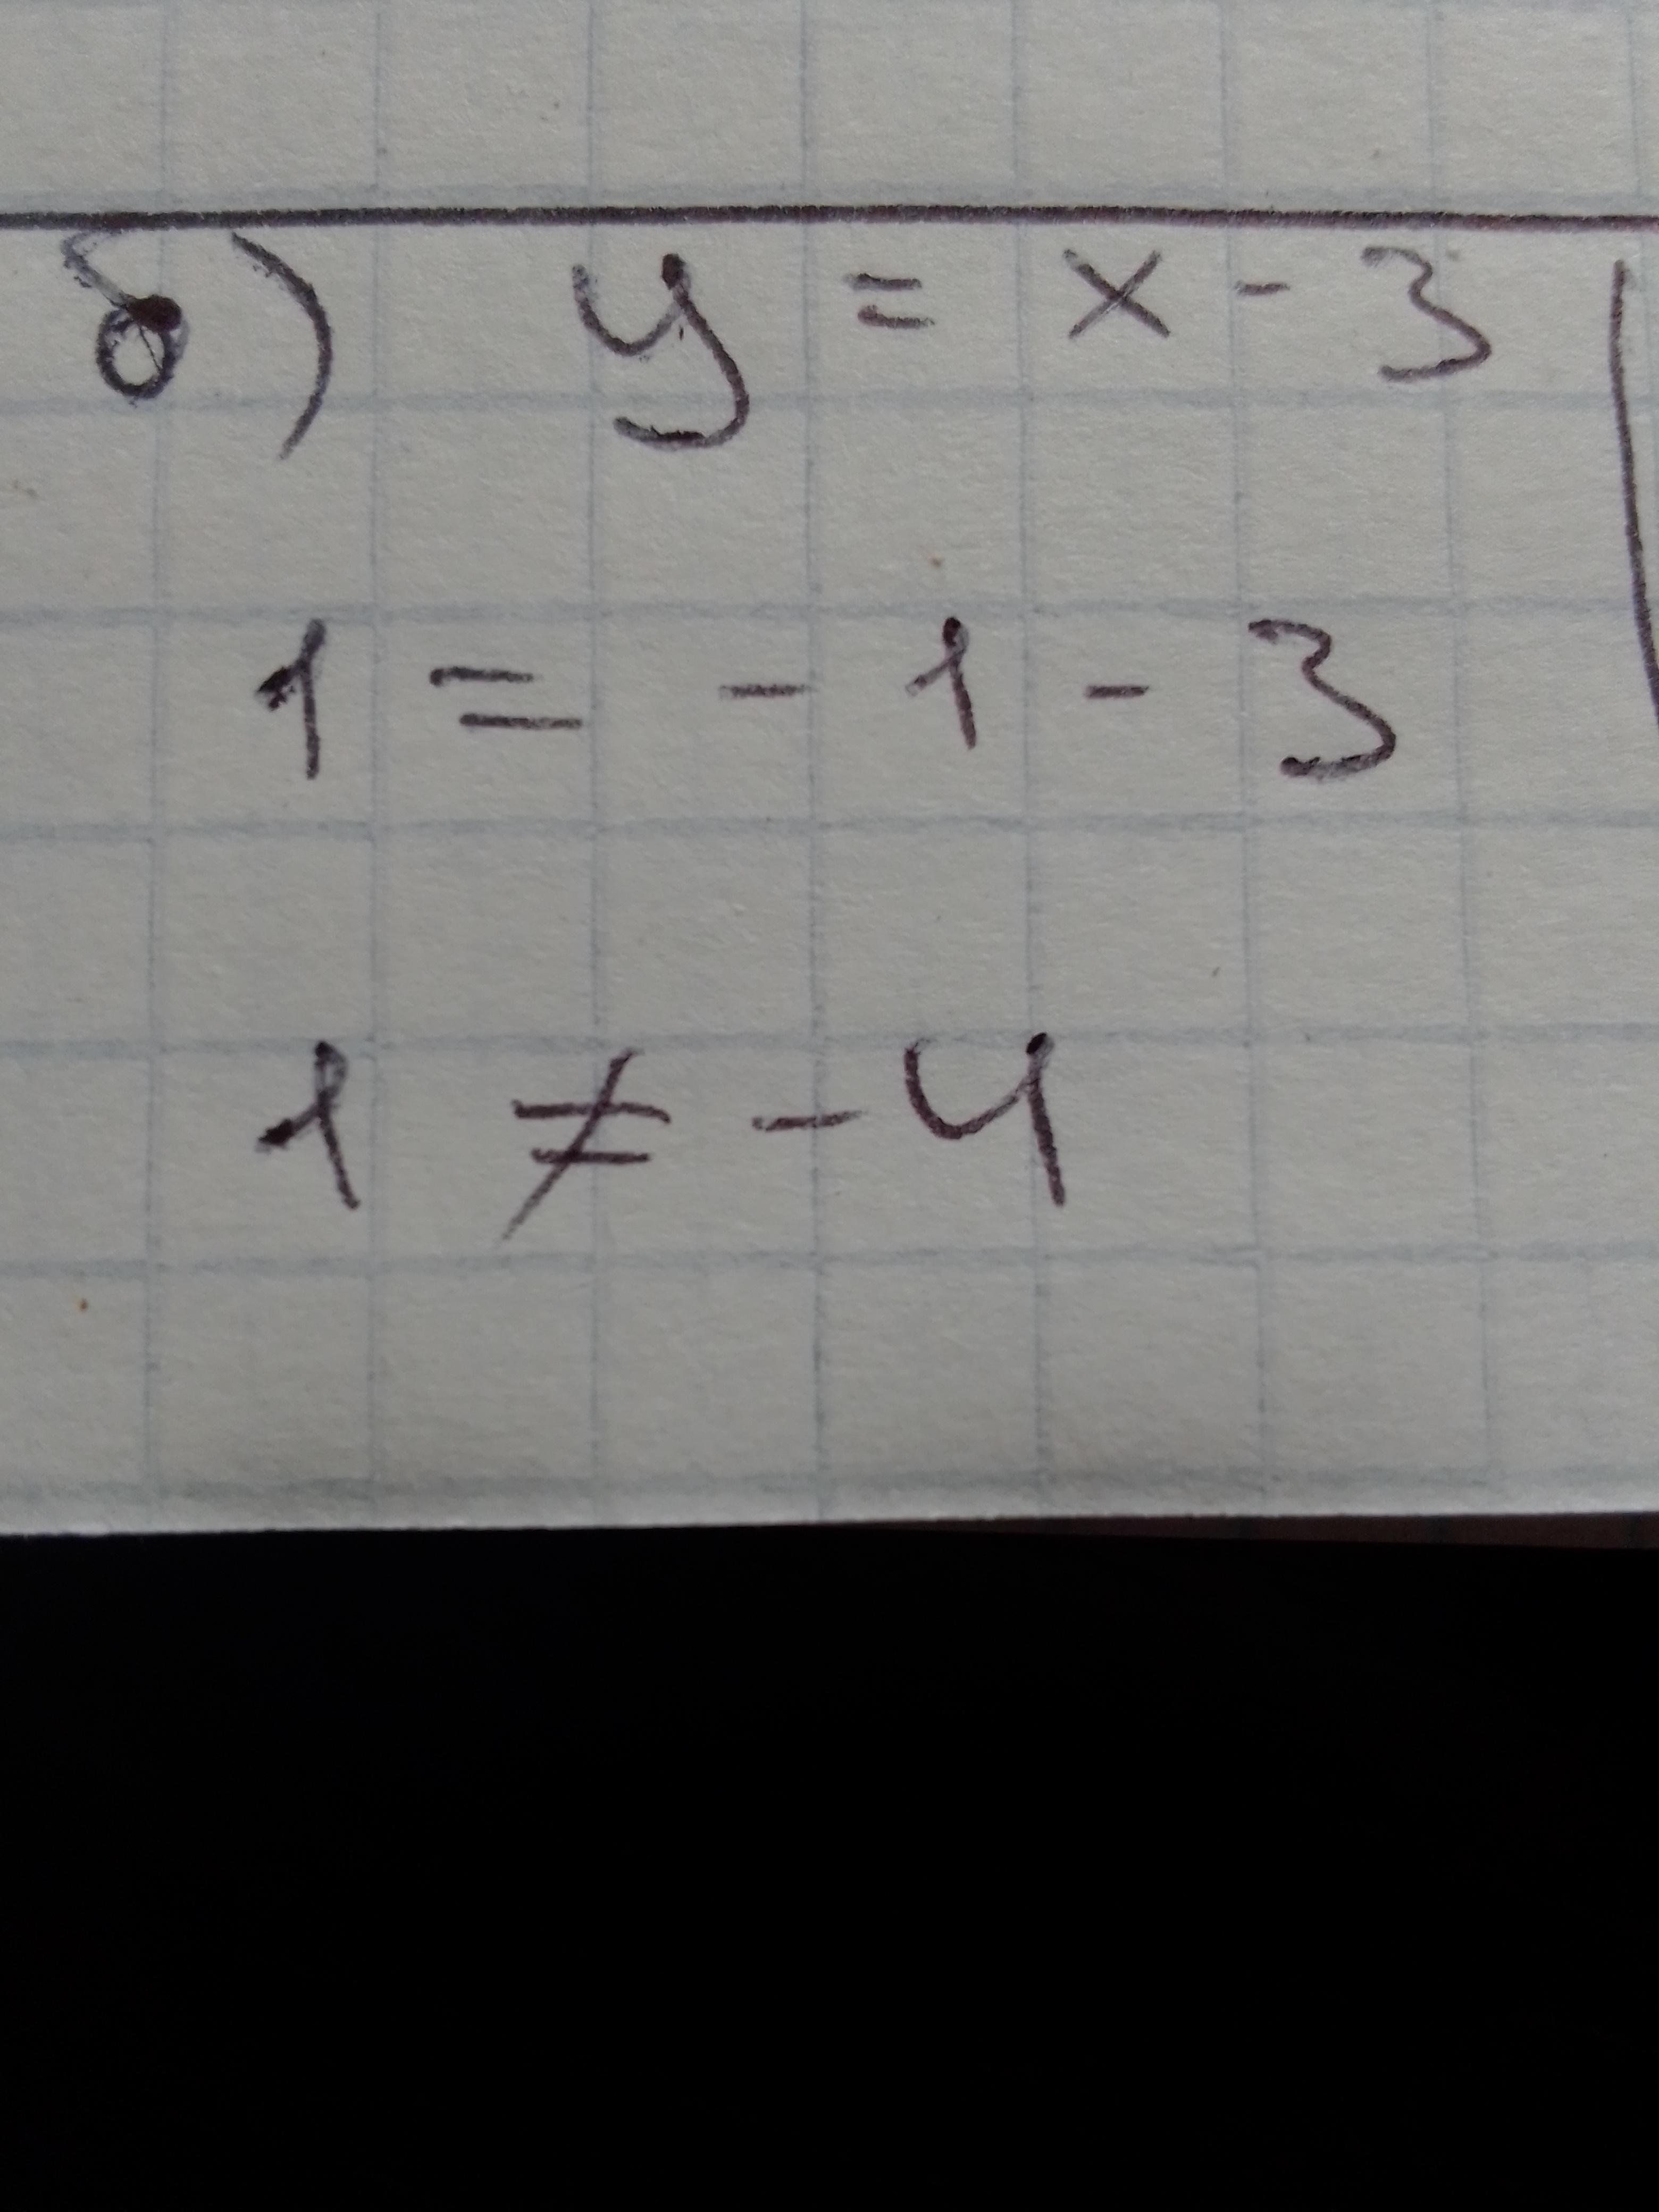 б) y = x - 3
1 = - 1 - 3
1 ≠ - 4